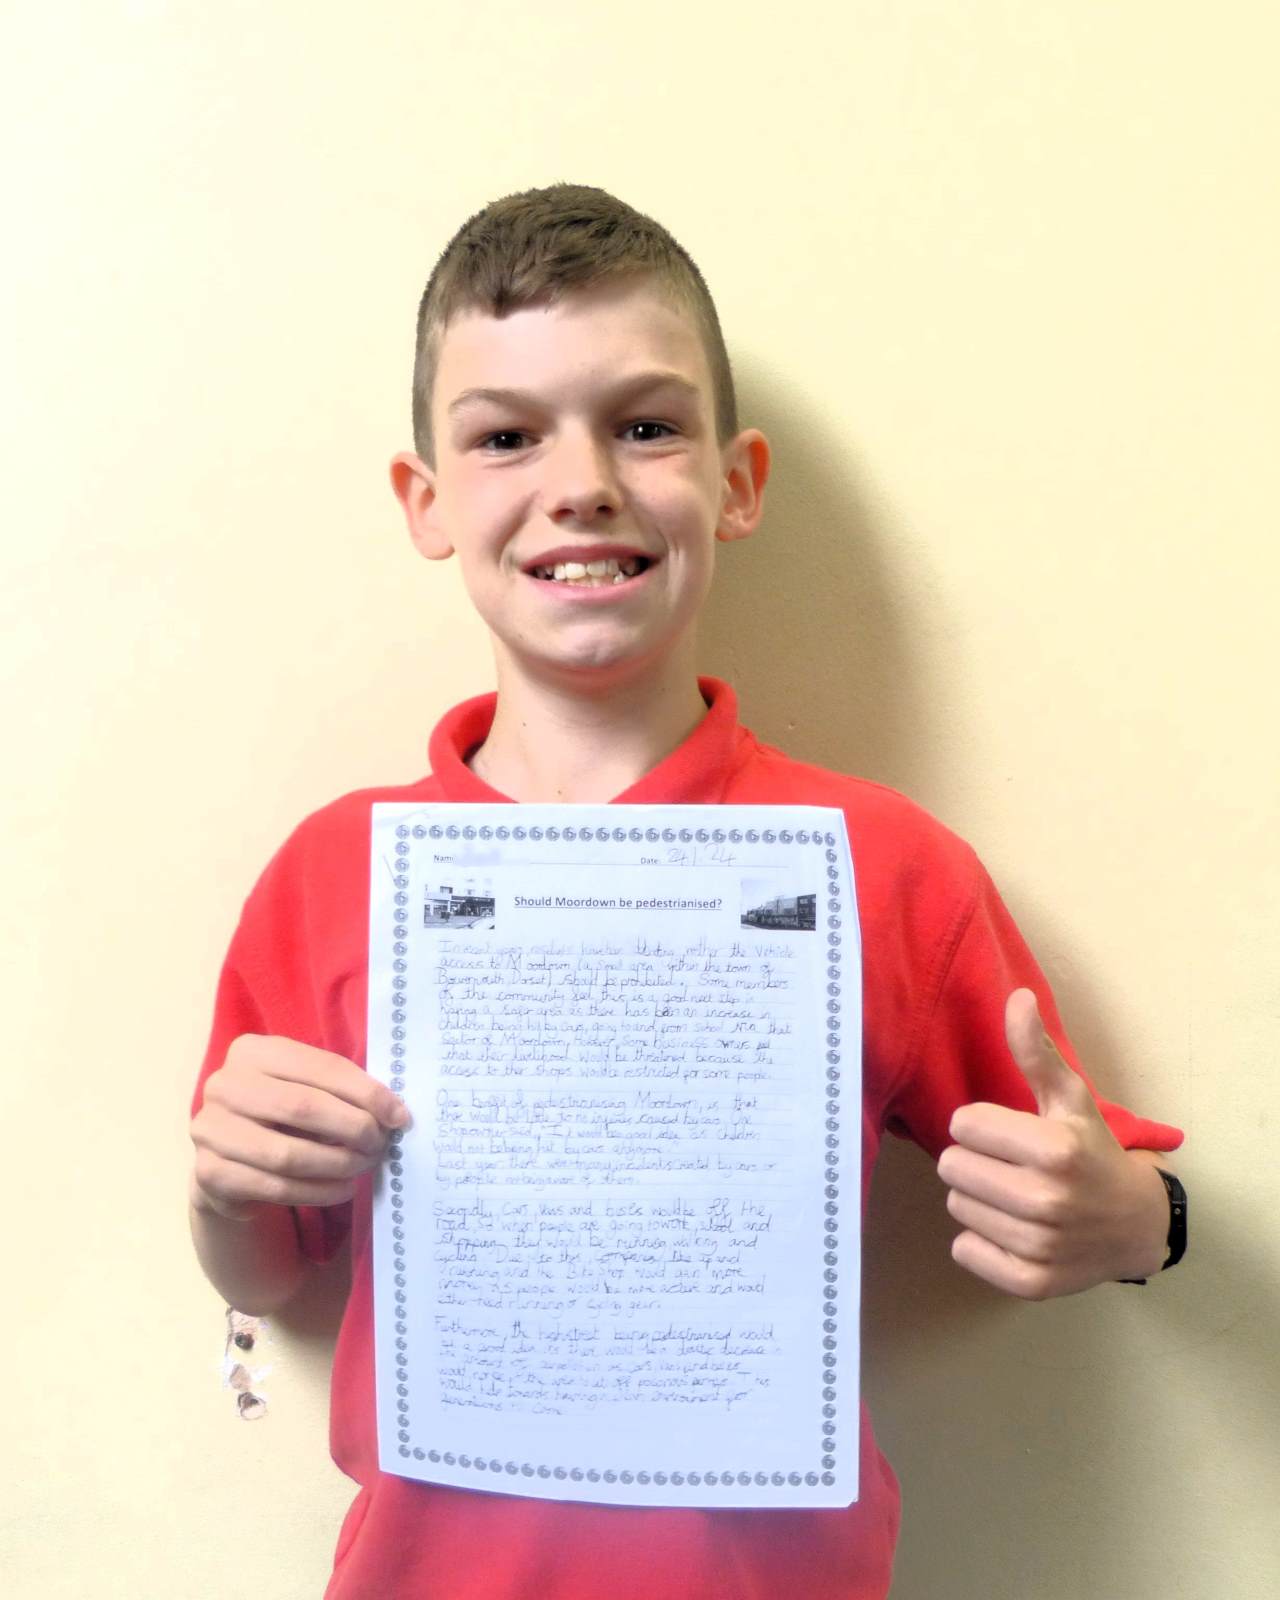 Name:
Date: 24/ 24
Should Moordown be pedestrianised?
In recent years, residents have been debating wether the vehicle
access to Moordown (a small area within the town of
Bournmouth, Dorset) should be prohibited. Some members
of the community feel this is a good next step in
having a safer area as there has been an increase in
children being hit by cars, going to and from school in that
sector of Moordown. However, some business owners feel
that their livelihood would be threatened because the
access to their shops would be restricted for some people.
One benefit of pedestrianising Moordown, is that
there would be little to no injuries caused by cars. One
Shopowner said, "It would be good idea as children
would not be being hit by cars anymore."
Last year there were many incidents created by cars or
by people not being aware of them.
Secondly, Cars, Vans and buses would be off the
road, so when people are going to work, school and
shopping they would be running, walking and
cycling. Due to this, companies like up and
running and the Bike shop would gain more
money as people would be more active and would
either need running or cycling gear.
Furthermore, the highstreet being pedestrianised would
be a good idea as there would be a drastic decrease in
the amount of as cars, vans and buses
would not be in the area to let off poisonous This
would help towards having a clean environment for
generations to come.